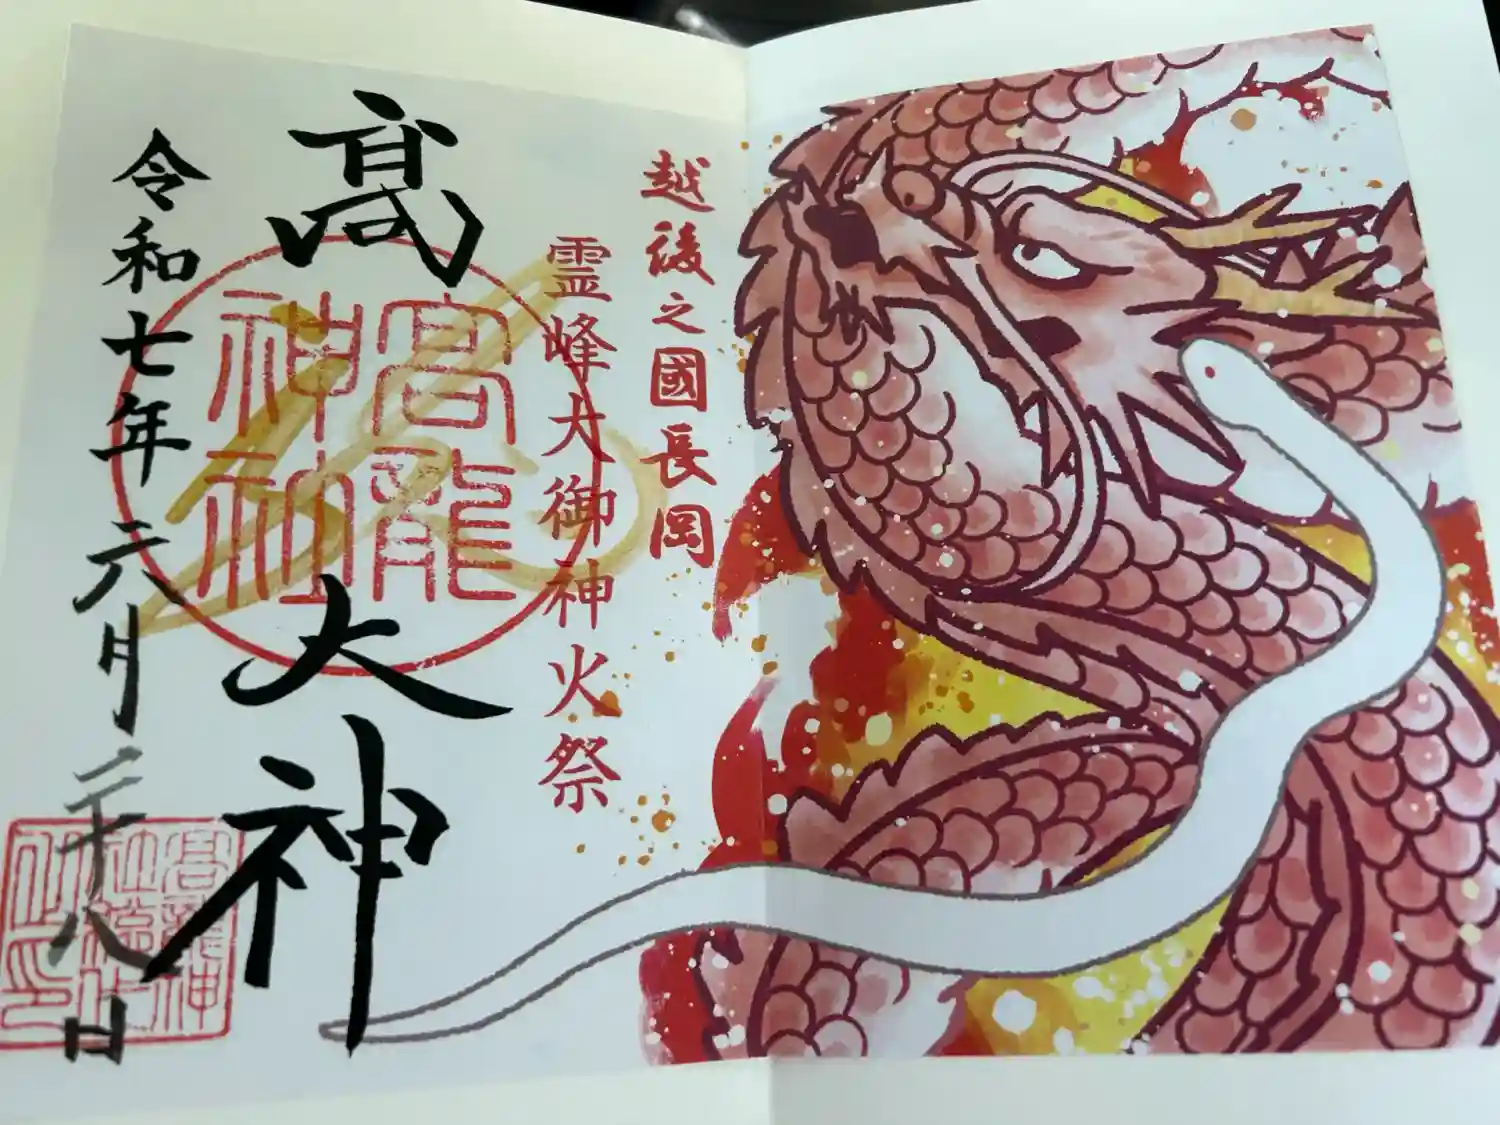 越後之國長岡
霊峰大御神火祭
高龍大神
高龍
神社
令和七年六月二十八日
高龍神